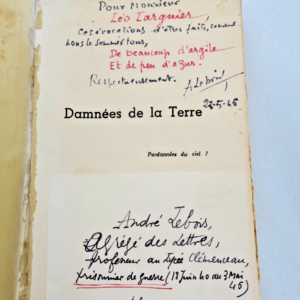 Pour Monsieur
Léo Larguier
ces évocations d'êtres faits, comme
nous le sommes tous,
De beaucoup d'argile
Et de peu d'azur.
Respectueusement.
A Lebois
22-5-45
Damnées de la Terre
Pardonnées du ciel ?
André Lebois,
Agrégé des Lettres,
Professeur au Lycée Clémenceau,
prisonnier de guerre (18 juin 40 au 3 Mai
45)